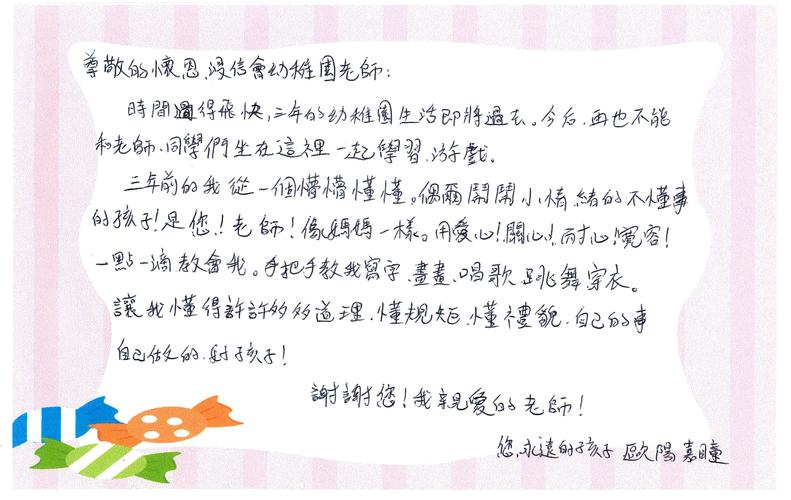 尊敬的懷恩浸信會幼稚園老師：
時間過得飛快，三年的幼稚園生活即將過去。今后，再也不能
和老師、同學們坐在這裡一起學習、游戲。
三年前的我從一個懵懵懂懂。偶爾鬧鬧小情緒的不懂事
的孩子！是您！老師！像媽媽一樣。用愛心！關心！耐心！寬容！
一點一滴教會我。手把手教我寫字、畫畫、唱歌、跳舞穿衣。
讓我懂得許許多多道理、懂規矩、懂禮貌、自己的事
自己做的好孩子！
謝謝您！我親愛的老師！
您，永遠的孩子 歐陽嘉曈